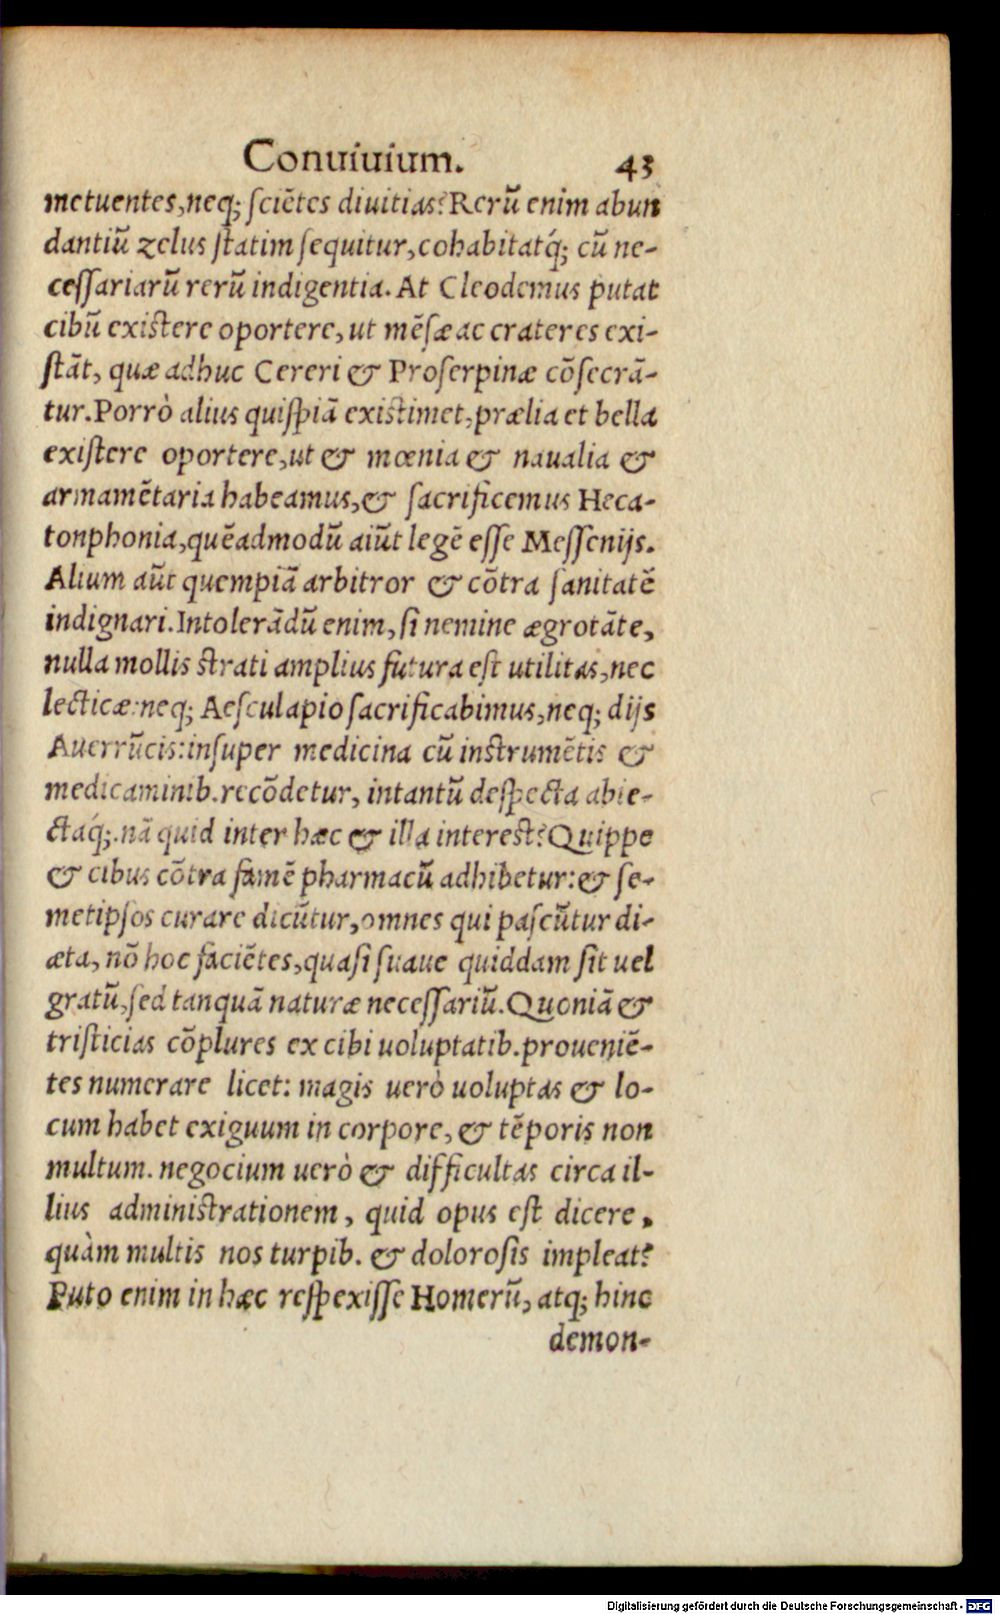 Conuiuium. 43
metuentes,neq; ſciẽtes diuitias?Rerũ enim abun
dantiũ zelus ſtatim ſequitur,cohabitatq́; cũ ne-
ceſſariarũ rerũ indigentia.At Cleodemus putat
cibũ exiſtere oportere, ut mẽſæ ac crateres exi-
ſtãt, quæ adhuc Cereri & Proſerpinæ cõſecrã-
tur.Porrò alius quiſpiã exiſtimet,prælia et bella
exiſtere oportere,ut & mœnia & naualia &
armamẽtaria habeamus,& ſacrificemus Heca-
tonphonia,quẽadmodũ aiũt legẽ eſſe Meſſenijs.
Alium aũt quempiã arbitror & cõtra ſanitatẽ
indignari.Intolerãdũ enim, ſi nemine ægrotãte,
nulla mollis ſtrati amplius futura eſt utilitas,nec
lecticæ:neq; Aeſculapio ſacrificabimus,neq; dijs
Auerrũcis:inſuper medicina cũ inſtrumẽtis &
medicaminib.recõdetur, intantũ deſpecta abie-
ctaq́;.nã quid inter hæc & illa intereſt?Quippe
& cibus cõtra famẽ pharmacũ adhibetur:& ſe-
metipſos curare dicũtur,omnes qui paſcũtur di-
æta, nõ hoc faciẽtes,quaſi ſuaue quiddam ſit uel
gratũ,ſed tanquã naturæ neceſſariũ.Quoniã &
triſticias cõplures ex cibi uoluptatib.proueniẽ-
tes numerare licet: magis uerò uoluptas & lo-
cum habet exiguum in corpore, & tẽporis non
multum. negocium uerò & difficultas circa il-
lius adminiſtrationem, quid opus eſt dicere,
quàm multis nos turpib. & doloroſis impleat?
Puto enim in hæc reſpexiſſe Homerũ, atq; hinc
demon-
Digitalisierung gefördert durch die Deutsche Forschungsgemeinschaft - DFG